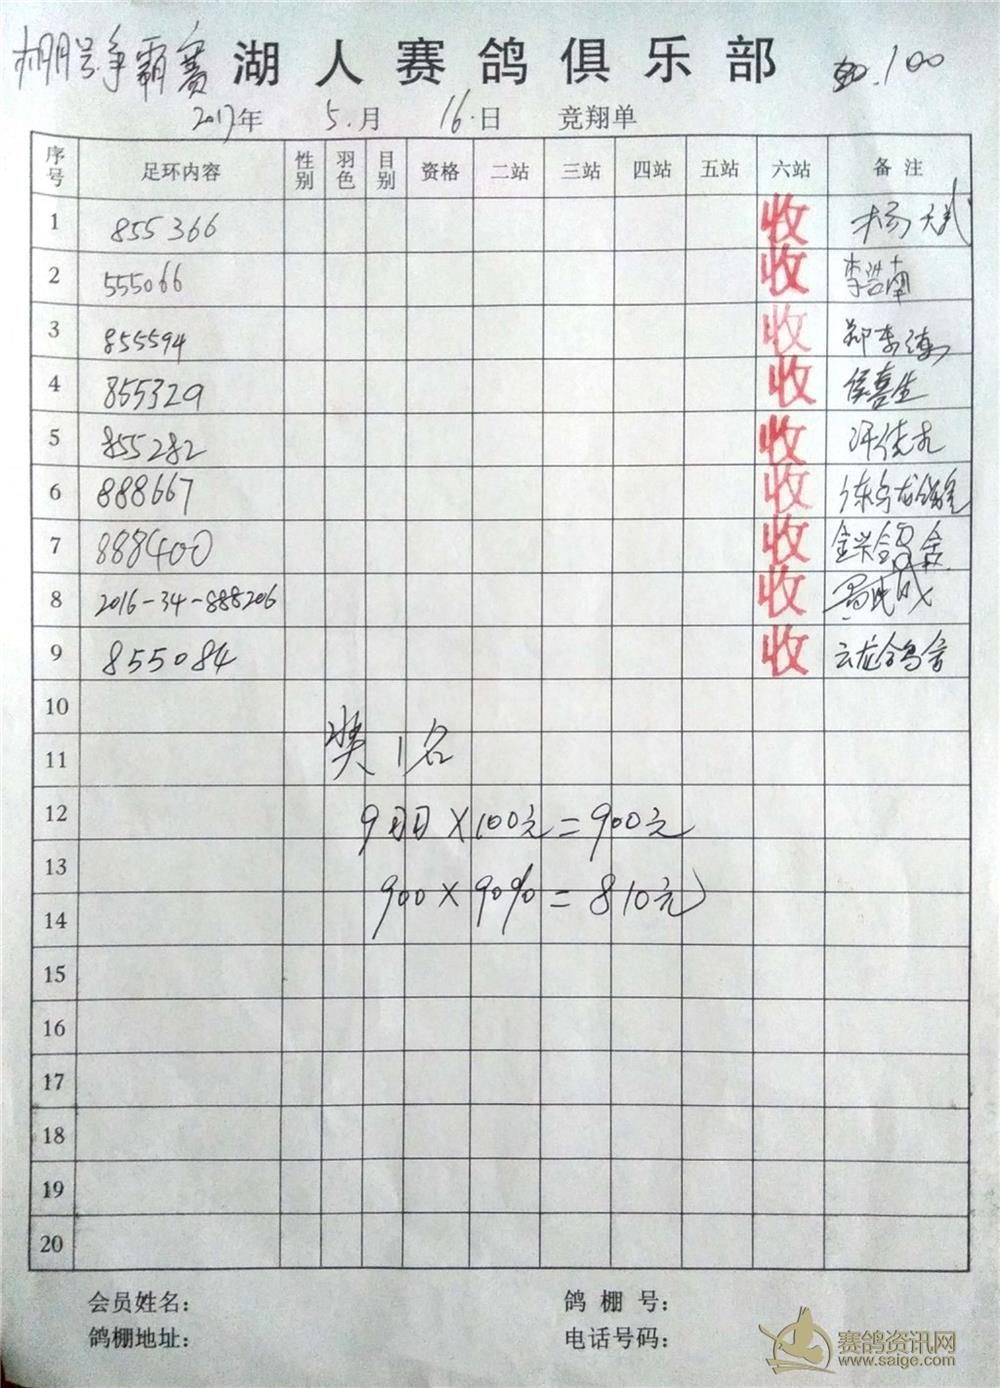 棚号争霸赛 湖人赛鸽俱乐部 100
2017年 5.月 16.日 竞翔单
序号 足环内容 性别 羽色 目别 资格 二站 三站 四站 五站 六站 备注
1 855366 收 杨天武
2 555066 收 李浩南
3 855594 收
4 855329 收 侯喜生
5 855282 收
6 888667 收
7 888400 收 金兴鸽舍
8 2016-34-888206 收
9 855084 收 云龙鸽舍
10
11 奖1名
12 9羽×100元=900元
13
14 900×90%=810元
15
16
17
18
19
20
会员姓名： 鸽棚号：
鸽棚地址： 电话号码：
赛鸽资讯网
www.saige.com